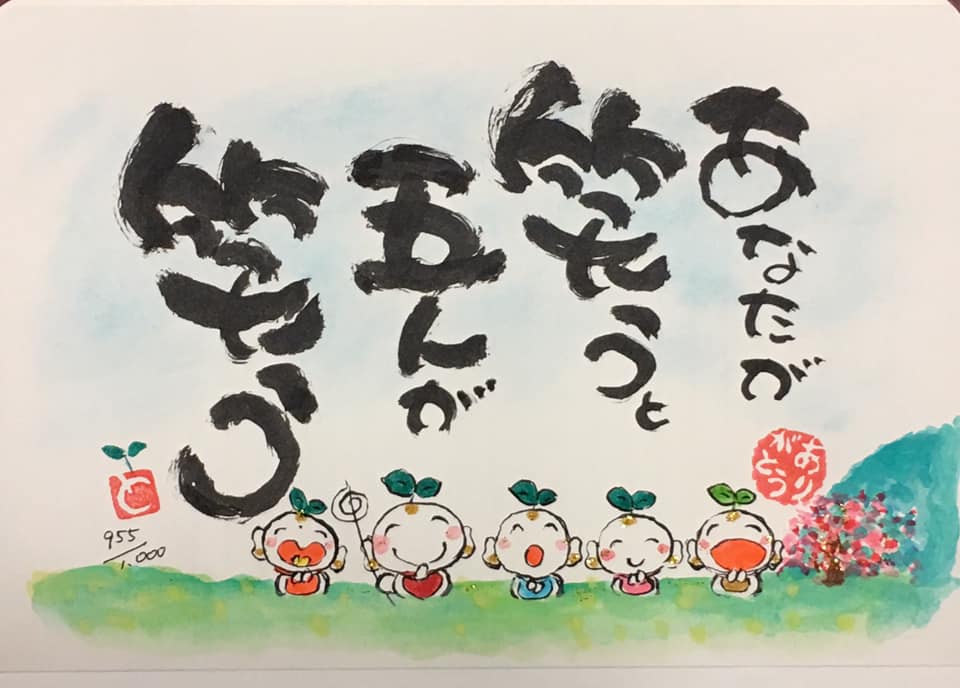 あなたが
笑うと
五んが
笑う
あり
がとう
と
955/1.000